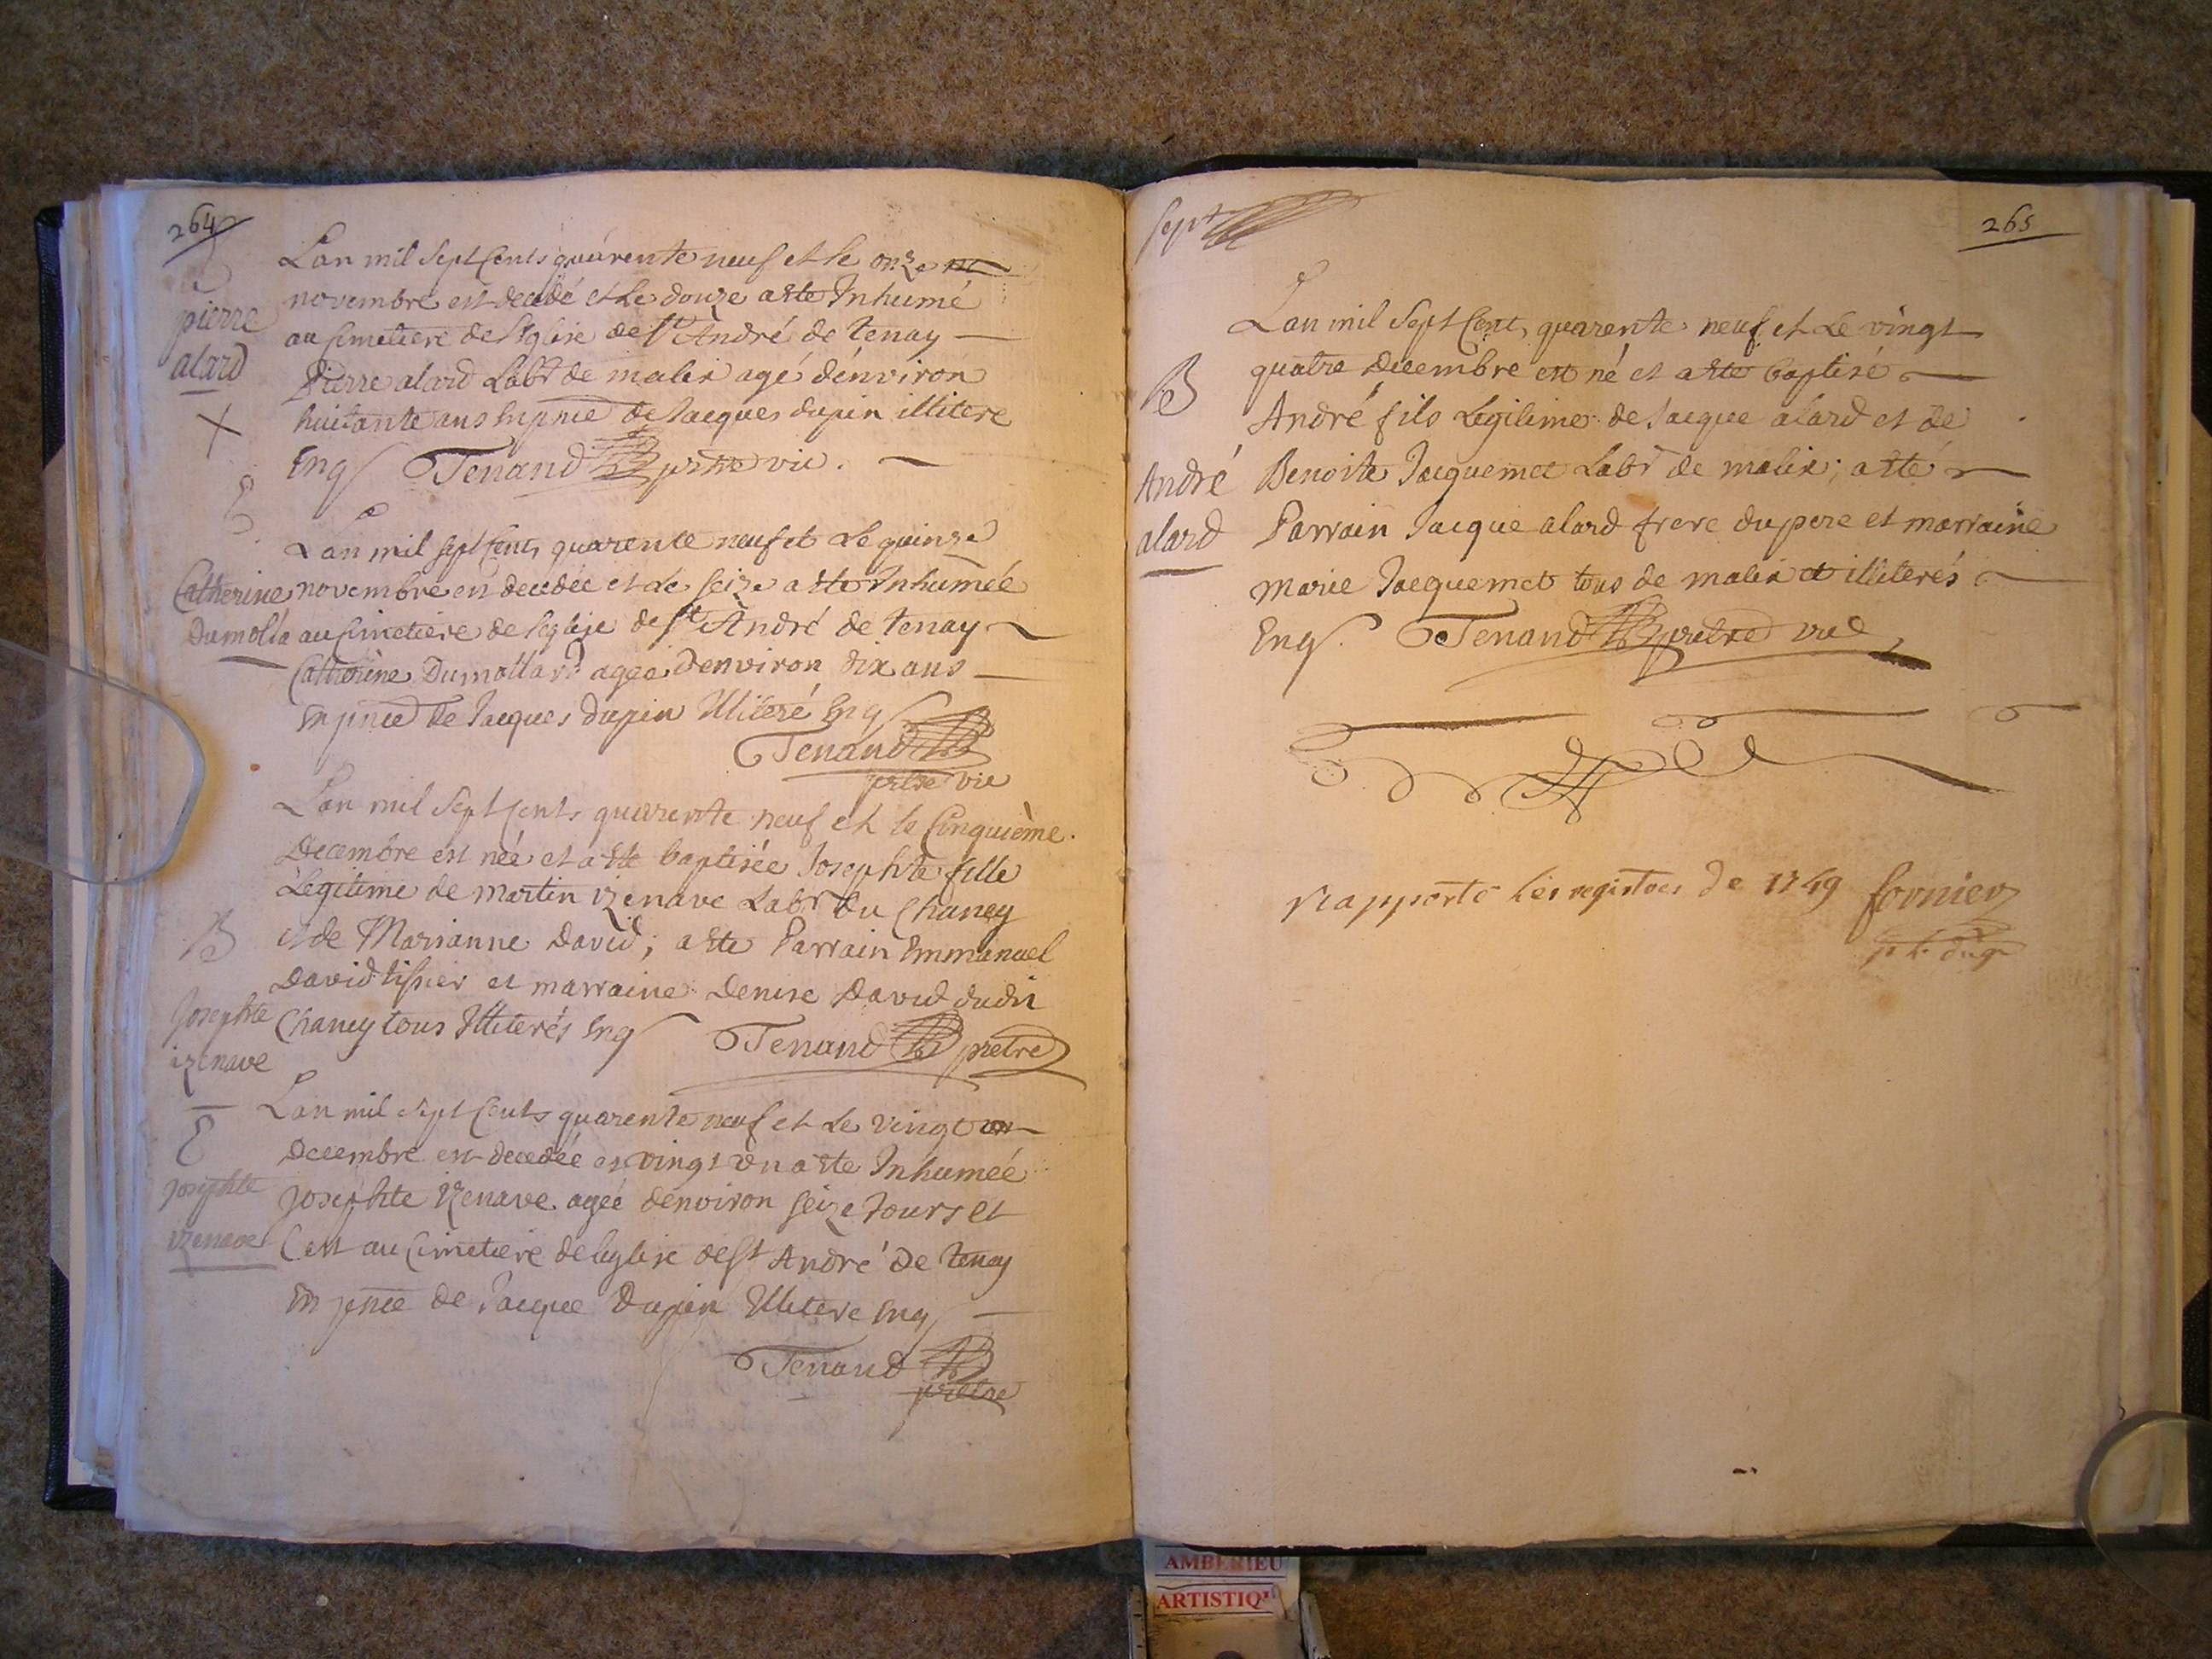 264
Lan mil Sept Cents quarente neuf et le onze
novembre est decedé et Le douze a ete Inhumé
au Cimetiere de leglise de St André de tenay
Pierre alard Labr de malix agé denviron
huitante ans En pnce de Jacques dupin illitere
Enqs Tenand pretre vic.
pierre
alard
X
E
Lan mil sept Cents quarente neuf et Le quinze
novembre est decedée et Le seize a ete Inhumée
au Cimetiere de leglise de St André de tenay
Catherine Dumollard agée denviron dix ans
En pnce de Jacques dupin Illiteré Enqs
Tenand
pretre vic
Catherine
Dumolla
Lan mil Sept Cents quarente neuf et le Cinquième
Decembre est née et a ete baptisée Josephte fille
Legitime de martin izenave Labr du Chaney
et de Marianne David; a ete Parrain Emmanuel
David tissier et marraine Denise David dudit
Chaney tous Illiterés Enqs Tenand pretre
B
Josephte
izenave
Lan mil Sept Cents quarente neuf et Le vingt
Decembre est decedée et vingt un a ete Inhumée
Josephte izenave agée denviron seize Jours et
C'est au Cimetiere de leglise de St André de tenay
En pnce de Jacque Dupin Illitere Enqs
Tenand
pretre
E
Josephte
izenave
Sept
265
Lan mil Sept Cents quarente neuf et Le vingt
quatre Decembre est né et a ete baptisé
André fils Legitime de Jacque alard et de
Benoite Jacquemet Labr de malix; a eté
Parrain Jacque alard frere du pere et marraine
marie Jacquemet tous de malix et illiterés
Enqs. Tenand pretre vic
B
André
alard
Rapporté les registres de 1749 fornier
AMBERIEU
ARTISTIQU